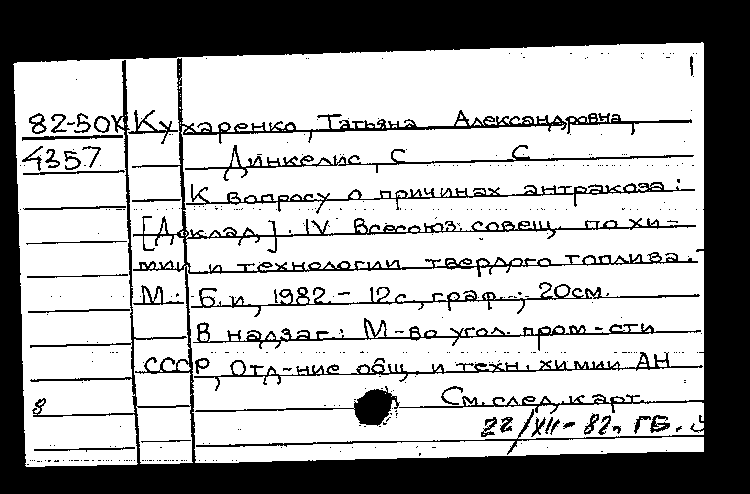 1
82-50К Кухаренко, Татьяна Александровна,
4357 Динкелис, С С
К вопросу о причинах антракоза:
[Доклад]. IV Всесоюз. совещ. по хи-
мии и технологии твердого топлива. -
М.: Б.и., 1982. - 12с., граф.; 20см.
В надзаг.: М-во угол. пром-сти
СССР, Отд-ние общ. и техн. химии АН
8 См. след. карт.
22/XII-82г. ГБ.